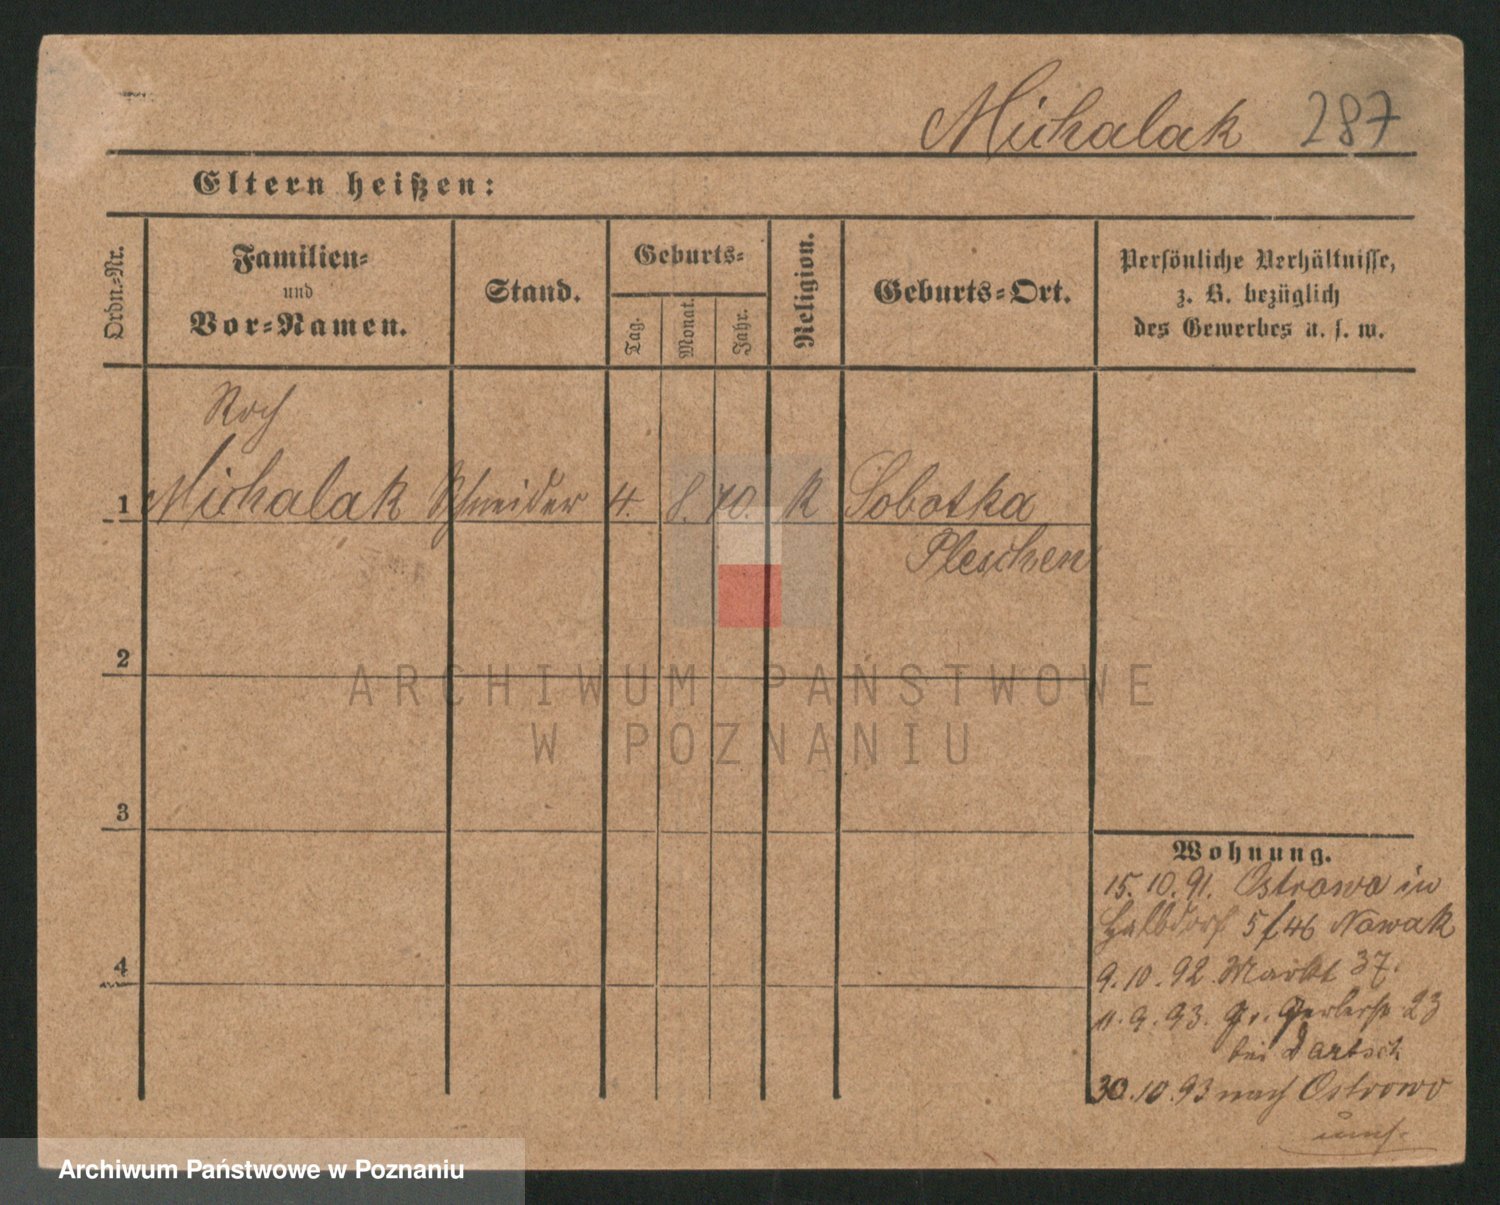 Michalak 287
Eltern heißen:
Ordn.-Nr.
Familien-
und
Vor-Namen.
Stand.
Geburts-
Tag.
Monat.
Jahr.
Religion.
Geburts-Ort.
Persönliche Verhältnisse,
z. B. bezüglich
des Gewerbes u. s. w.
Roch
1 Michalak Schneider 4. 8. 70. K Sobotka
Pleschen
2
3
4
Wohnung.
15. 10. 91. Ostrowo in
Halbdorf 5 46 Nowak
9. 10. 92. Markt 37.
11. 9. 93. Gr. Gerberstr 23
bei Bartsch
30. 10. 93 nach Ostrowo
ARCHIWUM PAŃSTWOWE
W POZNANIU
Archiwum Państwowe w Poznaniu